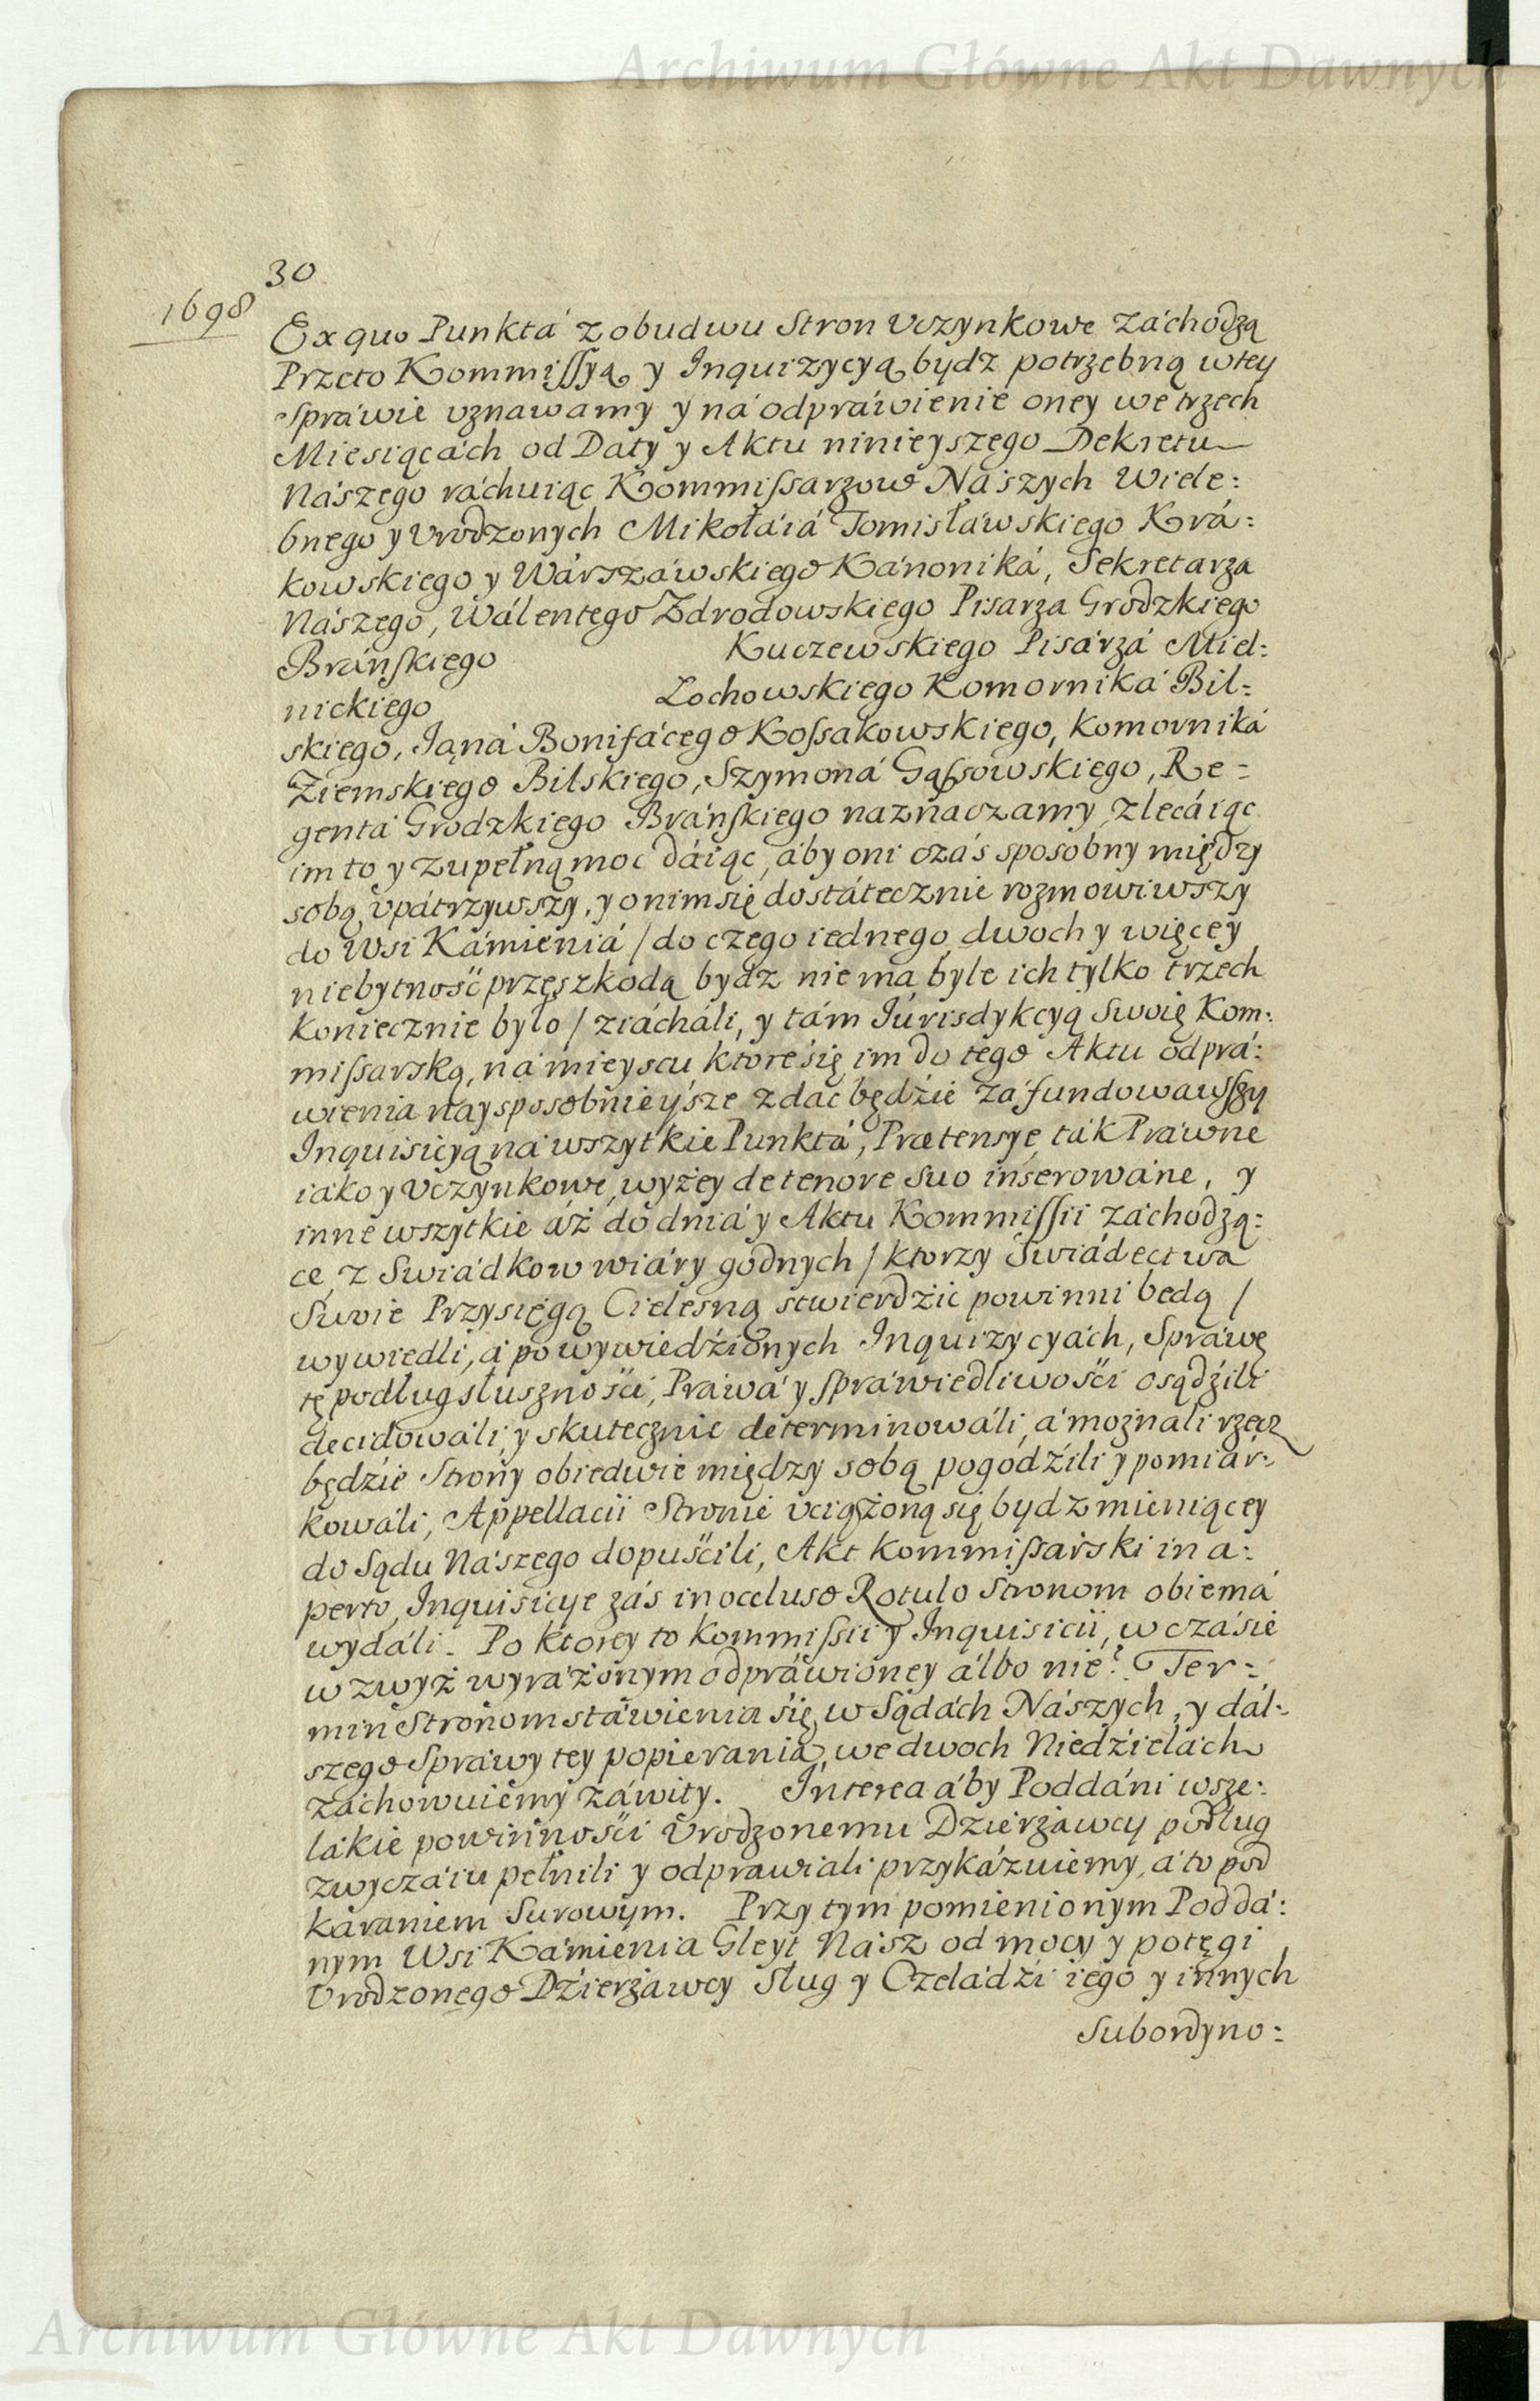 Archiwum Główne Akt Dawnych
30
1698
Ex quo Punktá z obudwu Stron vczynkowe záchodzą
Przeto Kommissyą y Inquizycyą bydz potrzebną w tey
Spráwie vznawamy y ná odpráwienie oney we trzech
Miesiącách od Daty y Aktu ninieyszego Dekretu
Nászego ráchuiąc Kommissarzow Nászych Wiele:
bnego y Vrodzonych Mikołáiá Tomisławskiego Krá:
kowskiego y Wárszáwskiego Kánoniká, Sekretarza
Nászego, Wálentego Zdrodowskiego Pisarza Grodzkiego
Bránskiego Kuczewskiego Pisárzá Miel:
nickiego Lochowskiego Komorniká Bil:
skiego, Janá Bonifácego Kossakowskiego, Komorniká
Ziemskiego Bilskiego, Szymoná Gąssowskiego, Re:
gentá Grodzkiego Bránskiego naznaczamy, zlecáiąc
im to y zupełną moc dáiąc, áby oni czás sposobny między
sobą vpátrzywszy, y o nim się dostátecznie rozmowiwszy
do Wsi Kámieniá / do czego iednego, dwoch y więcey
niebytność przeszkodą bydz nie ma, byle ich tylko trzech
koniecznie było / ziácháli, y tám Iurisdykcyą Swoię Kom:
missarską, ná mieyscu ktore się im do tego Aktu odprá:
wienia naysposobnieysze zdać będźie záfundowawszy
Inquisicyą ná wszytkie Punktá, Prætensye, ták Práwne
iáko y vczynkowe, wyżey de tenore suo inserowáne, y
inne wszytkie áż do dniá y Aktu Kommissii záchodzą:
ce, z Swiádkow wiáry godnych / ktorzy Swiádectwa
Swoie Przysięgą Cielesną stwierdźić powinni będą /
wywiedli, á po wywiedźionych Inquizycyách, Spráwę
tę podług słuszności, Práwá y spráwiedliwości osądźili
decidowáli, y skutecznie determinowáli, á moznali rzecz
będzie Strony obiedwie między sobą pogodźili y pomiár:
kowáli, Appellacii Stronie vciążoną się bydz mieniącey
do Sądu Nászego dopuścili, Akt Kommissarski in a:
perto, Inquisicye zás in occluso Rotulo Stronom obiemá
wydáli. Po ktorey to Kommissii y Inquisicii, w czásie
w zwyż wyráżonym odpráwioney álbo nie? Ter:
min Stronom stáwienia się w Sądách Nászych, y dál:
szego Spráwy tey popierania, we dwoch Niedźielách
záchowuiemy záwity. Interea áby Poddáni wsze:
lakie powinności Vrodzonemu Dzierżawcy podług
zwyczáiu pełnili y odprawiali przykázuiemy, á to pod
karaniem Surowym. Przy tym pomienionym Poddá:
nym Wsi Kámienia Gleyt Nász od mocy y potęgi
Vrodzonego Dźierżawcy Sług y Czeládźi iego y innych
Subordyno:
Archiwum Główne Akt Dawnych